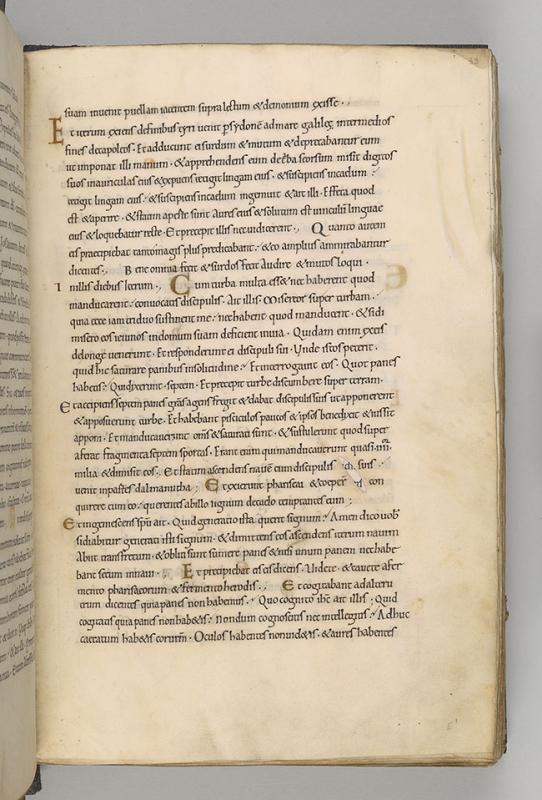 suam inuenit puellam iacentem supra lectum & demonium exisse.
Et iterum exiens de finibus tyri uenit p sydonē ad mare galileę inter medios
fines decapoleos. Et adducunt ei surdum & mutum & deprecabantur eum
ut imponat illi manum. & apprehendens eum de turba seorsum misit digitos
suos in auriculas eius & expuens tetigit linguam eius. & suspiciens in cælum
tetigit linguam eius. & suspiciens in cælum ingemuit & ait illi. Effeta quod
est aperire. & statim apertę sunt aures eius & solutum est uinculū linguae
eius & loquebatur recte. Et precepit illis ne cui dicerent. Quanto autem
eis precipiebat tanto magis plus predicabant. & eo amplius ammirabantur
dicentes. Bene omnia fecit & surdos fecit audire & mutos loqui.
In illis diebus iterum. Cum turba multa ess& nec haberent quod
manducarent. conuocatis discipulis. Ait illis. Misereor super turbam.
quia ecce iam triduo sustinent me. nec habent quod manducent. & si di
misero eos ieiunos in domum suam deficient in uia. Quidam enim ex eis
de longe uenerunt. Et responderunt ei discipuli sui. Unde istos poterit
quis hic saturare panibus in solitudine. Et interrogauit eos. Quot panes
habetis. Qui dixerunt. septem. Et precepit turbe discumbere super terram.
Et accipiens septem panes gr̄as agens fregit & dabat discipulis suis ut apponerent
& apposuerunt turbe. Et habebant pisciculos paucos & ipsos benedixit & iussit
apponi. Et manducauerunt & saturati sunt. & sustulerunt quod super
auerat fragmenta septem sportas. Erant enim qui manducauerunt quasi .iiii.
milia. & dimisit eos. Et statim ascendens nauē cum discipulis suis.
uenit in partes dalmanutha. Et exierunt pharisei & coeper con
quirere cum eo. querentes ab illo signum de cælo temptantes eum.
Et ingemescens spū ait. Quid generatio ista querit signum. Amen dico uob
si dabitur generationi isti signum. & dimittens eos ascendens iterum nauim
Abiit trans fretum. & obliti sunt sumere panes & nisi unum panem non habe
bant secum in naui. Et precipiebat eis dicens. Videte. & cauete a fer
mento pharisæorum & fermento herodis. Et cogitabant ad alteru
trum dicentes quia panes non habemus. Quo cognito ihc ait illis. Quid
cogitatis quia panes non hab&is. Nondum cognoscitis nec intellegitis. Adhuc
caecatum hab&is cor urm. Oculos habentes non uid&is. & aures habentes